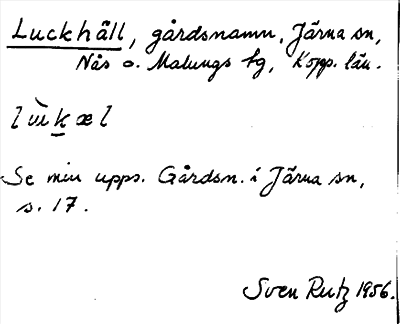 Luckhäll, gårdsnamn, Järna sn,
Nås o. Malungs tg, Kopp. län.
Se min upps. Gårdsn. i Järna sn,
s. 17.
Sven Rutz 1956.